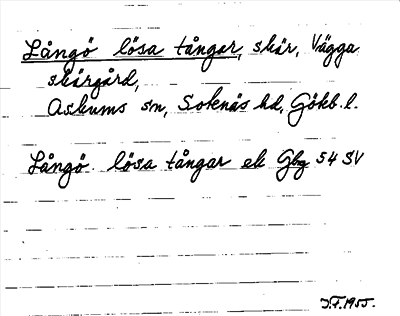 Långö lösa tångar, skär, Vägga
skärgård,
Askums sn, Sotenäs hd, Götb. l.
Långö lösa tångar ek Gbg 54 SV
T.F. 1955.